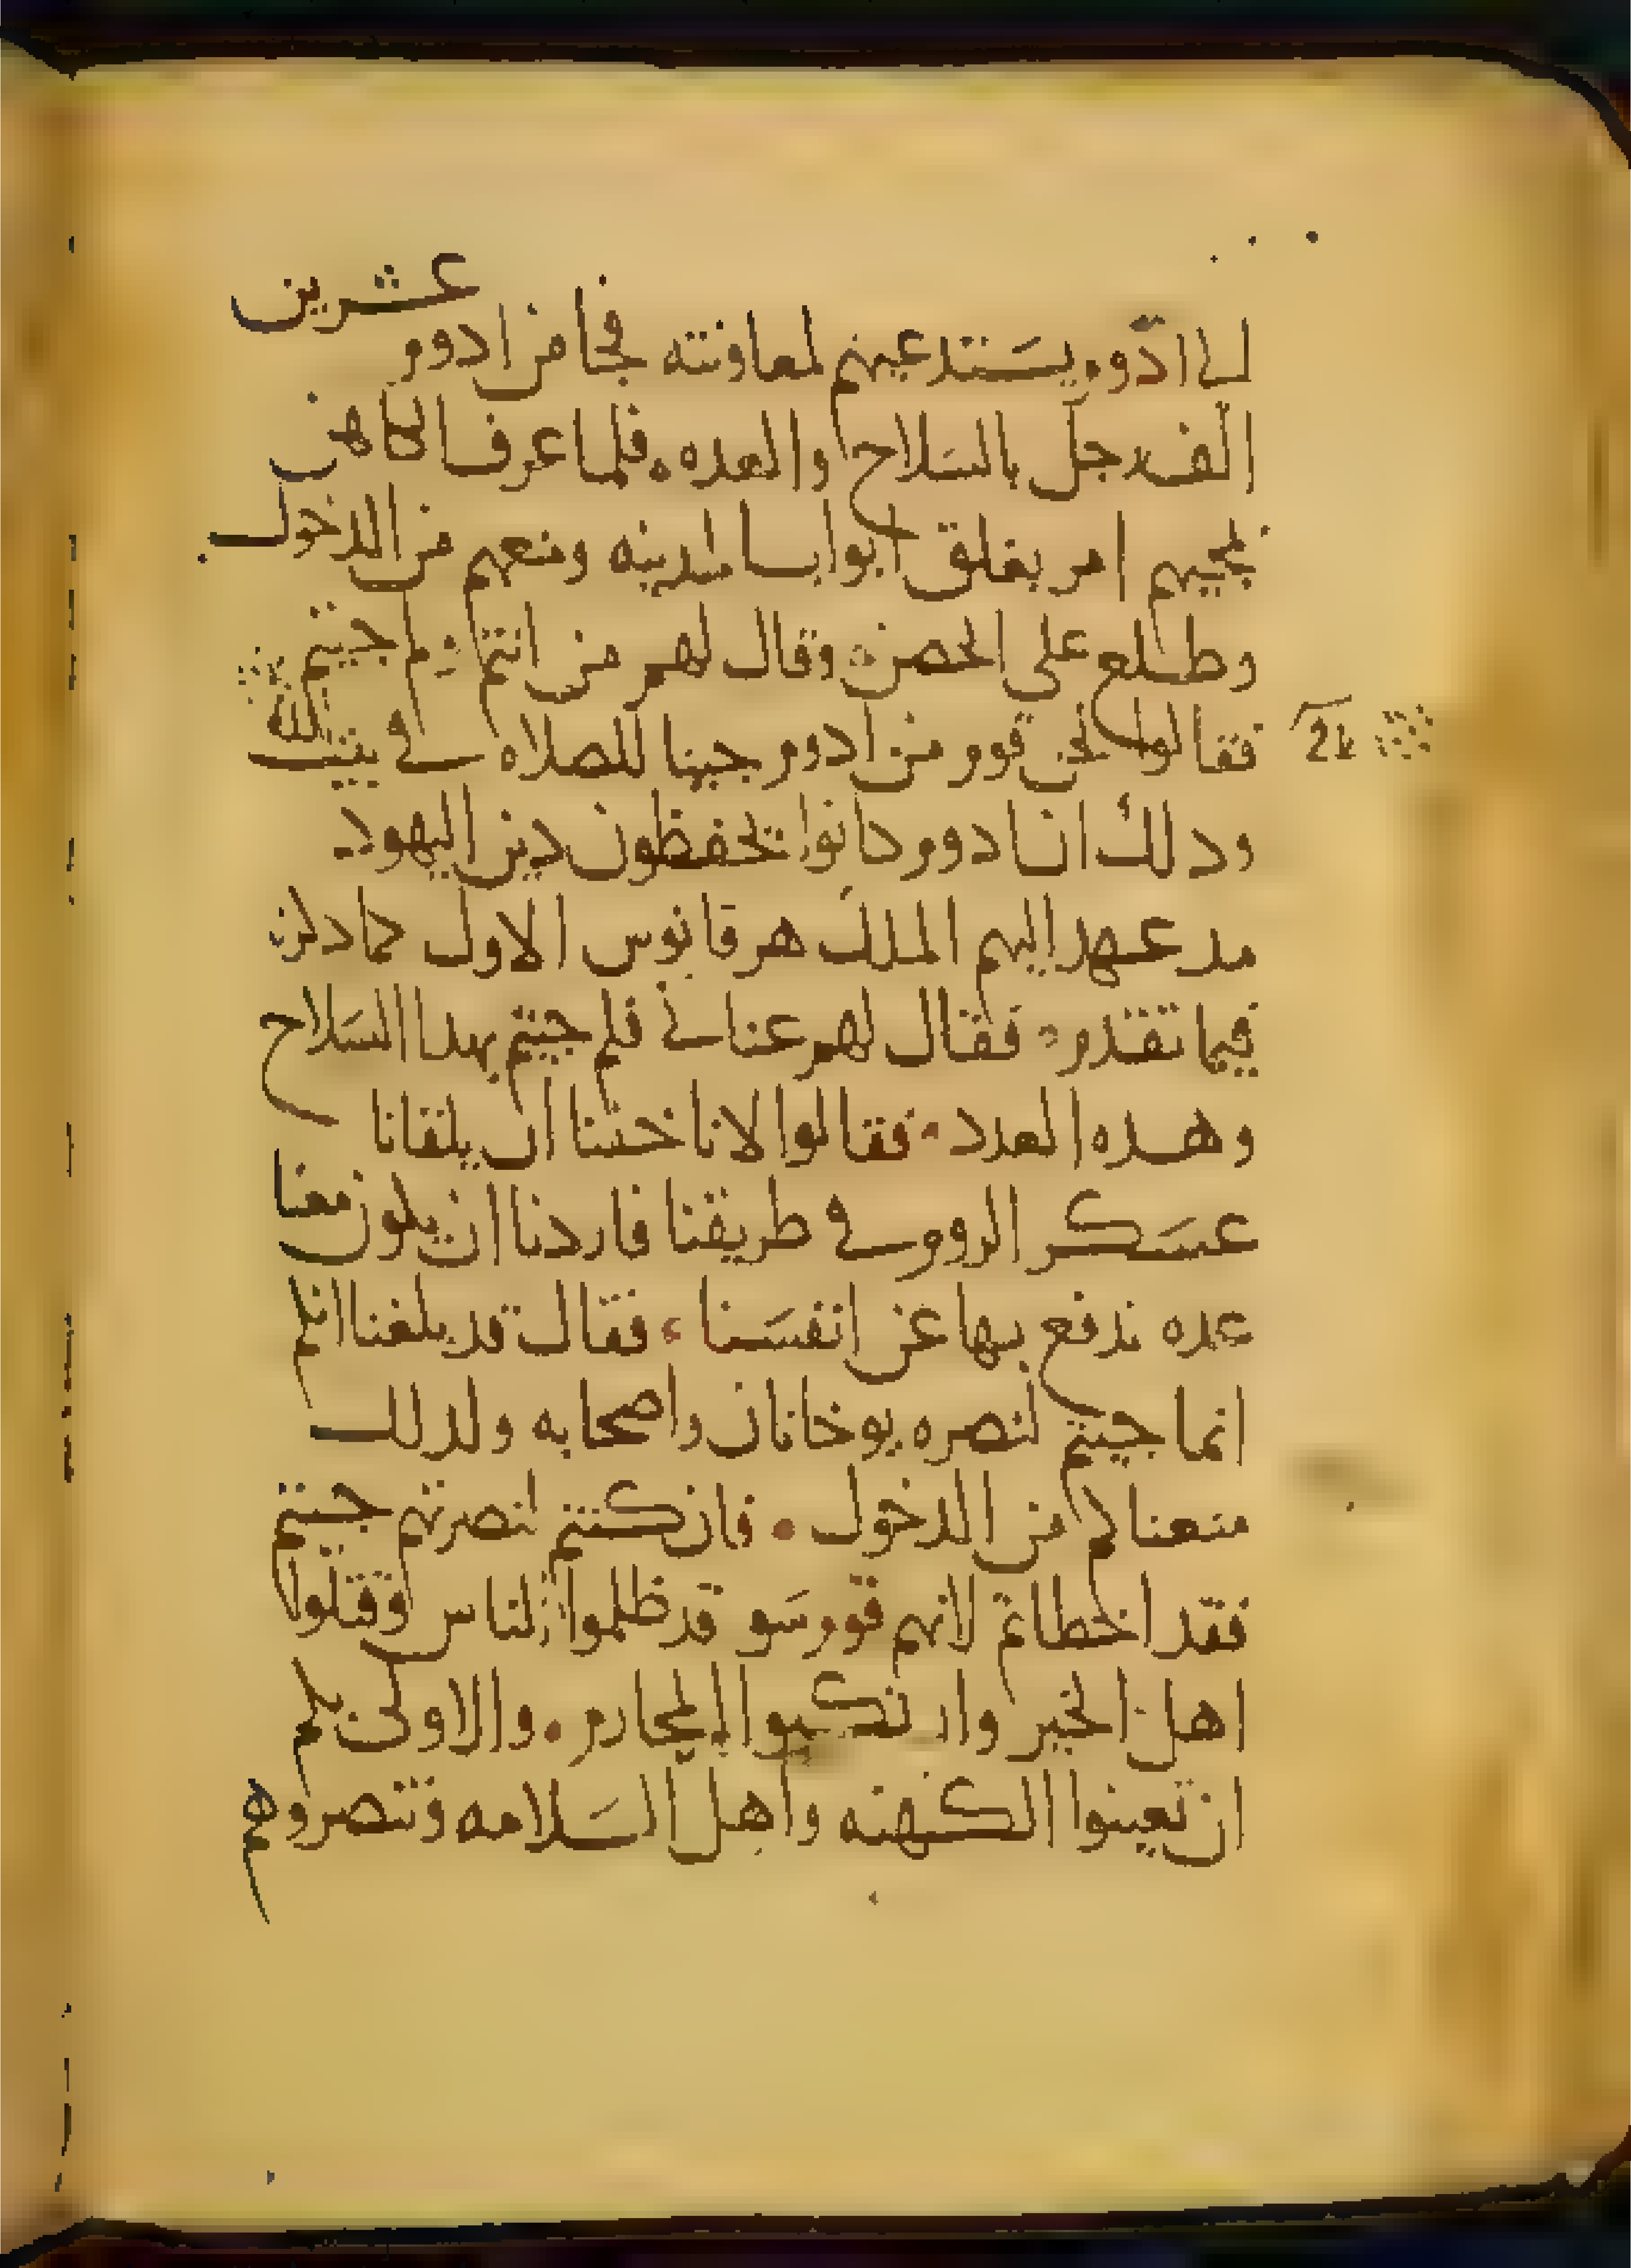 الى ادوم يستدعيهم لمعاونته فجا من ادوم عشرين
الف رجل بالسلاح والعده . فلما عرف الكاهن
بمجيهم امر بغلق ابواب المدينه ومنعهم من الدخول
وطلع على الحصن وقال لهم من انتم ولم جيتم
فقالوا نحن قوم من ادوم جينا للصلاه في بيت الله
ودلك ان ادوم كانوا يحفظون دين اليهود
مد عهد اليهم الملك هرقانوس الاول كما دكرنا
فيما تقدم . فقال لهم عناني فلم جيتم بهدا السلاح
وهده العدد . فقالوا لانا خشينا ان يلقانا
عسكر الروم في طريقنا فاردنا ان يكون معنا
عده ندفع بها عن انفسنا ، فقال قد بلغنا انكم
انما جيتم لنصره يوخانان واصحابه ولدلك
منعناكم من الدخول . فان كنتم لنصرتهم جيتم
فقد اخطاتم لانهم قوم سو قد ظلموا الناس وقتلوا
اهل الخير وارتكبوا المحارم . والاولى بكم
ان تعينوا الكهنه واهل السلامه وتنصروهم